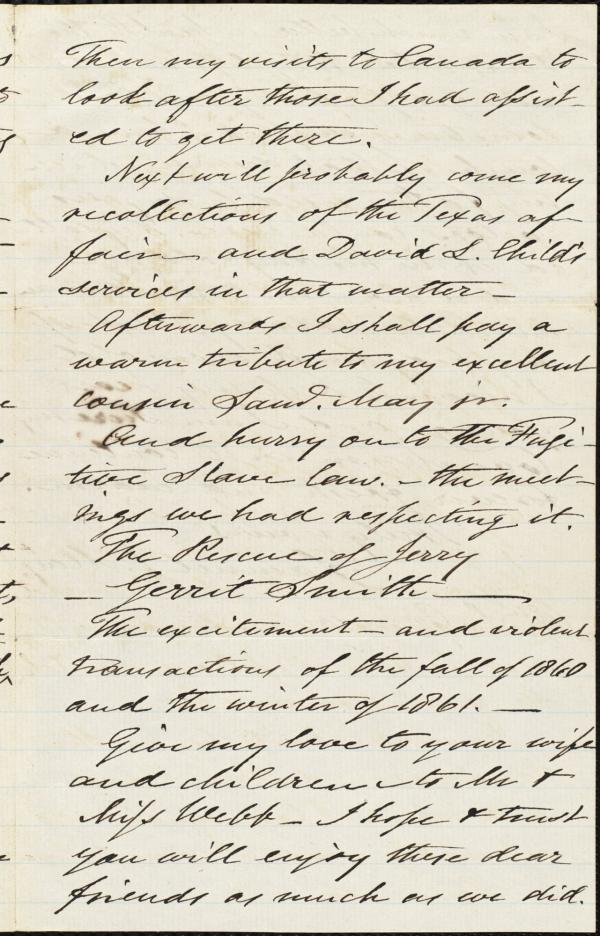 Then my visits to Canada to
look after those I had assist-
ed to get there.
Next will probably come my
recollections of the Texas af
fair and David L. Child's
services in that matter -
Afterwards I shall pay a
warm tribute to my excellent
cousin Saml. May jr.
And hurry on to the Fugi-
tive Slave law. - the meet-
ings we had respecting it.
The Rescue of Jerry
- Gerrit Smith -
The excitement - and violent
transactions of the fall of 1860
and the winter of 1861. -
Give my love to your wife
and children - to Mr &
Miss Webb - I hope & trust
you will enjoy these dear
friends as much as we did.